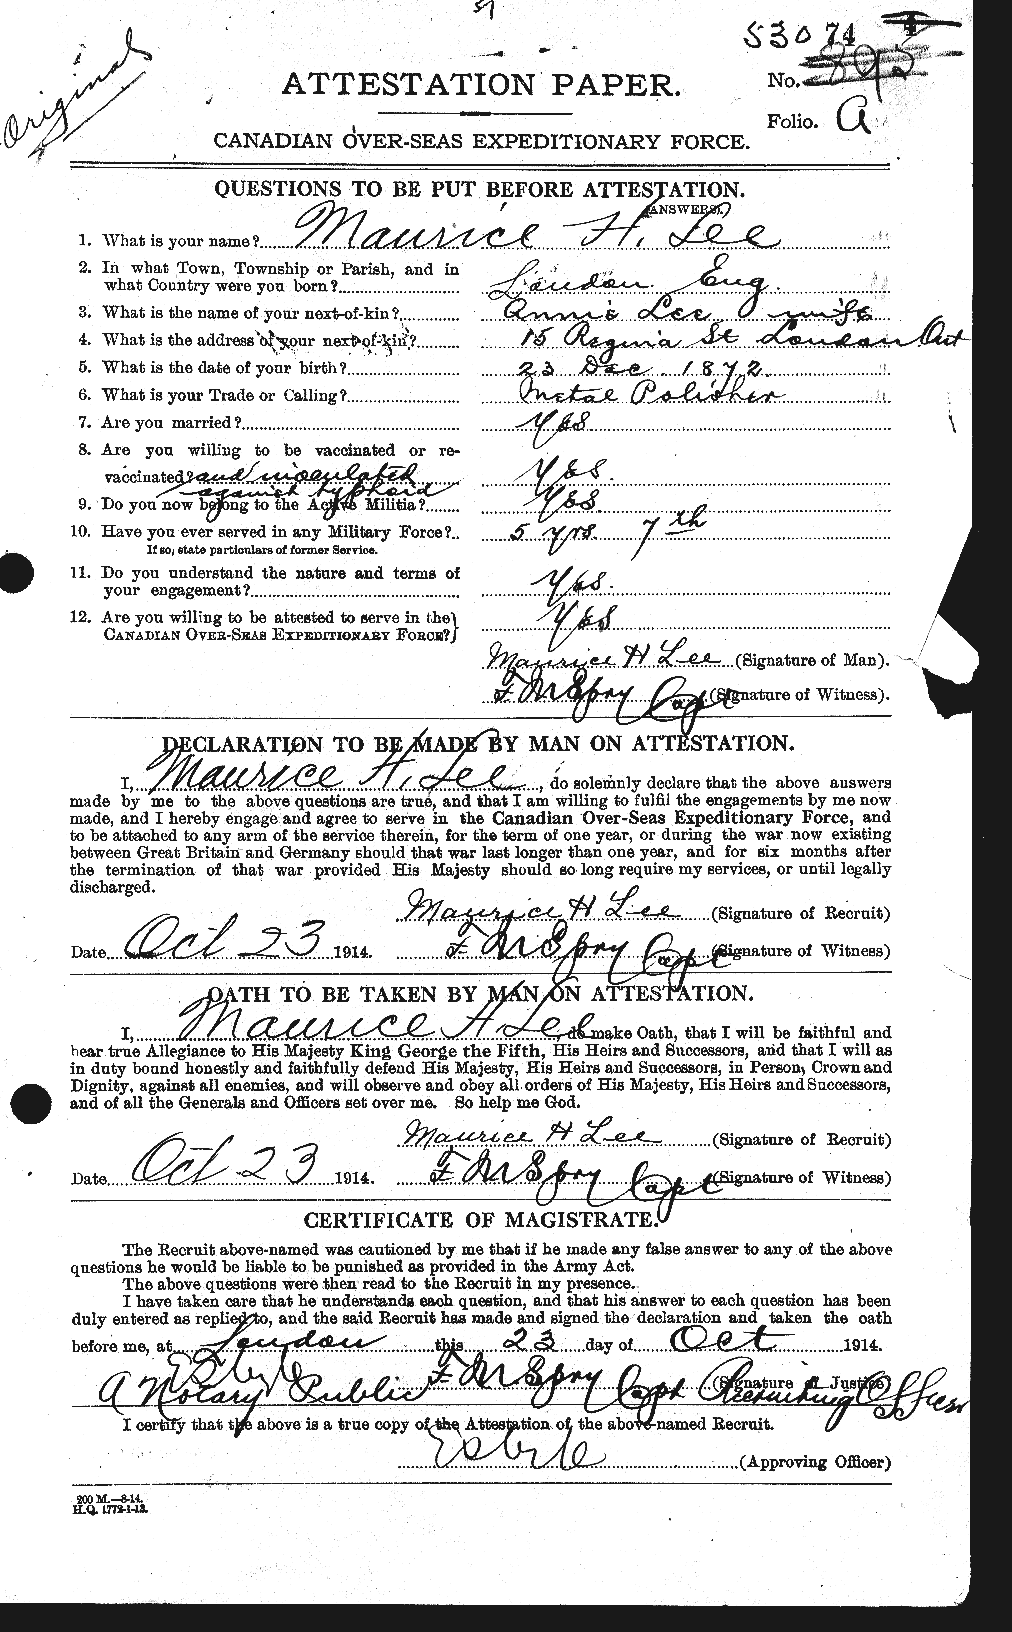 Originals
53074
ATTESTATION PAPER.
No. 892
Folio. A
CANADIAN OVER-SEAS EXPEDITIONARY FORCE.
QUESTIONS TO BE PUT BEFORE ATTESTATION.
(ANSWERS).
1. What is your name? Maurice H. Lee
2. In what Town, Township or Parish, and in
what Country were you born? London Eng.
3. What is the name of your next-of-kin? Annie Lee wife
4. What is the address of your next-of-kin? 15 Regina St London Ont
5. What is the date of your birth? 23 Dec. 1872.
6. What is your Trade or Calling? Metal Polisher
7. Are you married? Yes
8. Are you willing to be vaccinated or re-
vaccinated? and inoculated Yes.
against typhoid
9. Do you now belong to the Active Militia? Yes
10. Have you ever served in any Military Force? 5 yrs. 7th
If so, state particulars of former Service.
11. Do you understand the nature and terms of
your engagement? Yes.
12. Are you willing to be attested to serve in the
CANADIAN OVER-SEAS EXPEDITIONARY FORCE? Yes
Maurice H Lee (Signature of Man).
F M Spry Capt (Signature of Witness).
DECLARATION TO BE MADE BY MAN ON ATTESTATION.
I, Maurice H. Lee, do solemnly declare that the above answers
made by me to the above questions are true, and that I am willing to fulfil the engagements by me now
made, and I hereby engage and agree to serve in the Canadian Over-Seas Expeditionary Force, and
to be attached to any arm of the service therein, for the term of one year, or during the war now existing
between Great Britain and Germany should that war last longer than one year, and for six months after
the termination of that war provided His Majesty should so long require my services, or until legally
discharged.
Maurice H Lee (Signature of Recruit)
Date Oct 23 1914. F M Spry Capt (Signature of Witness)
OATH TO BE TAKEN BY MAN ON ATTESTATION.
I, Maurice H Lee, do make Oath, that I will be faithful and
bear true Allegiance to His Majesty King George the Fifth, His Heirs and Successors, and that I will as
in duty bound honestly and faithfully defend His Majesty, His Heirs and Successors, in Person, Crown and
Dignity, against all enemies, and will observe and obey all orders of His Majesty, His Heirs and Successors,
and of all the Generals and Officers set over me. So help me God.
Maurice H Lee (Signature of Recruit)
Date Oct 23 1914. F M Spry Capt (Signature of Witness)
CERTIFICATE OF MAGISTRATE.
The Recruit above-named was cautioned by me that if he made any false answer to any of the above
questions he would be liable to be punished as provided in the Army Act.
The above questions were then read to the Recruit in my presence.
I have taken care that he understands each question, and that his answer to each question has been
duly entered as replied to, and the said Recruit has made and signed the declaration and taken the oath
before me, at London this 23 day of Oct 1914.
F M Spry Capt Recruiting Officer (Signature of Justice)
A Notary Public
I certify that the above is a true copy of the Attestation of the above-named Recruit.
(Approving Officer)
200 M.—8-14.
H.Q. 1772-1-13.